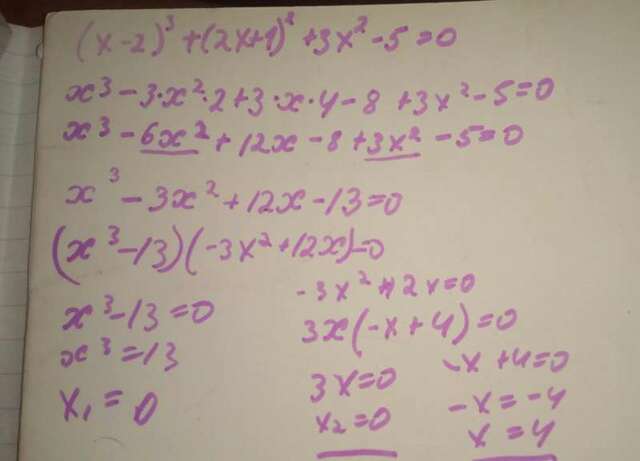 (x-2)³ +(2x+1)² +3x² -5=0
x³ -3·x²·2+3·x·4-8 +3x²-5=0
x³ -6x² +12x-8+3x² -5=0
x³ -3x²+12x-13=0
(x³-13)(-3x²+12x)=0
x³-13=0
x³=13
x₁=0
-3x²+12x=0
3x(-x+4)=0
3x=0
x₂=0
-x+4=0
-x=-4
x=4